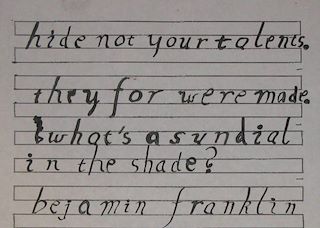 hide not your talents.
they for were made.
what's a sundial
in the shade?
bejamin franklin